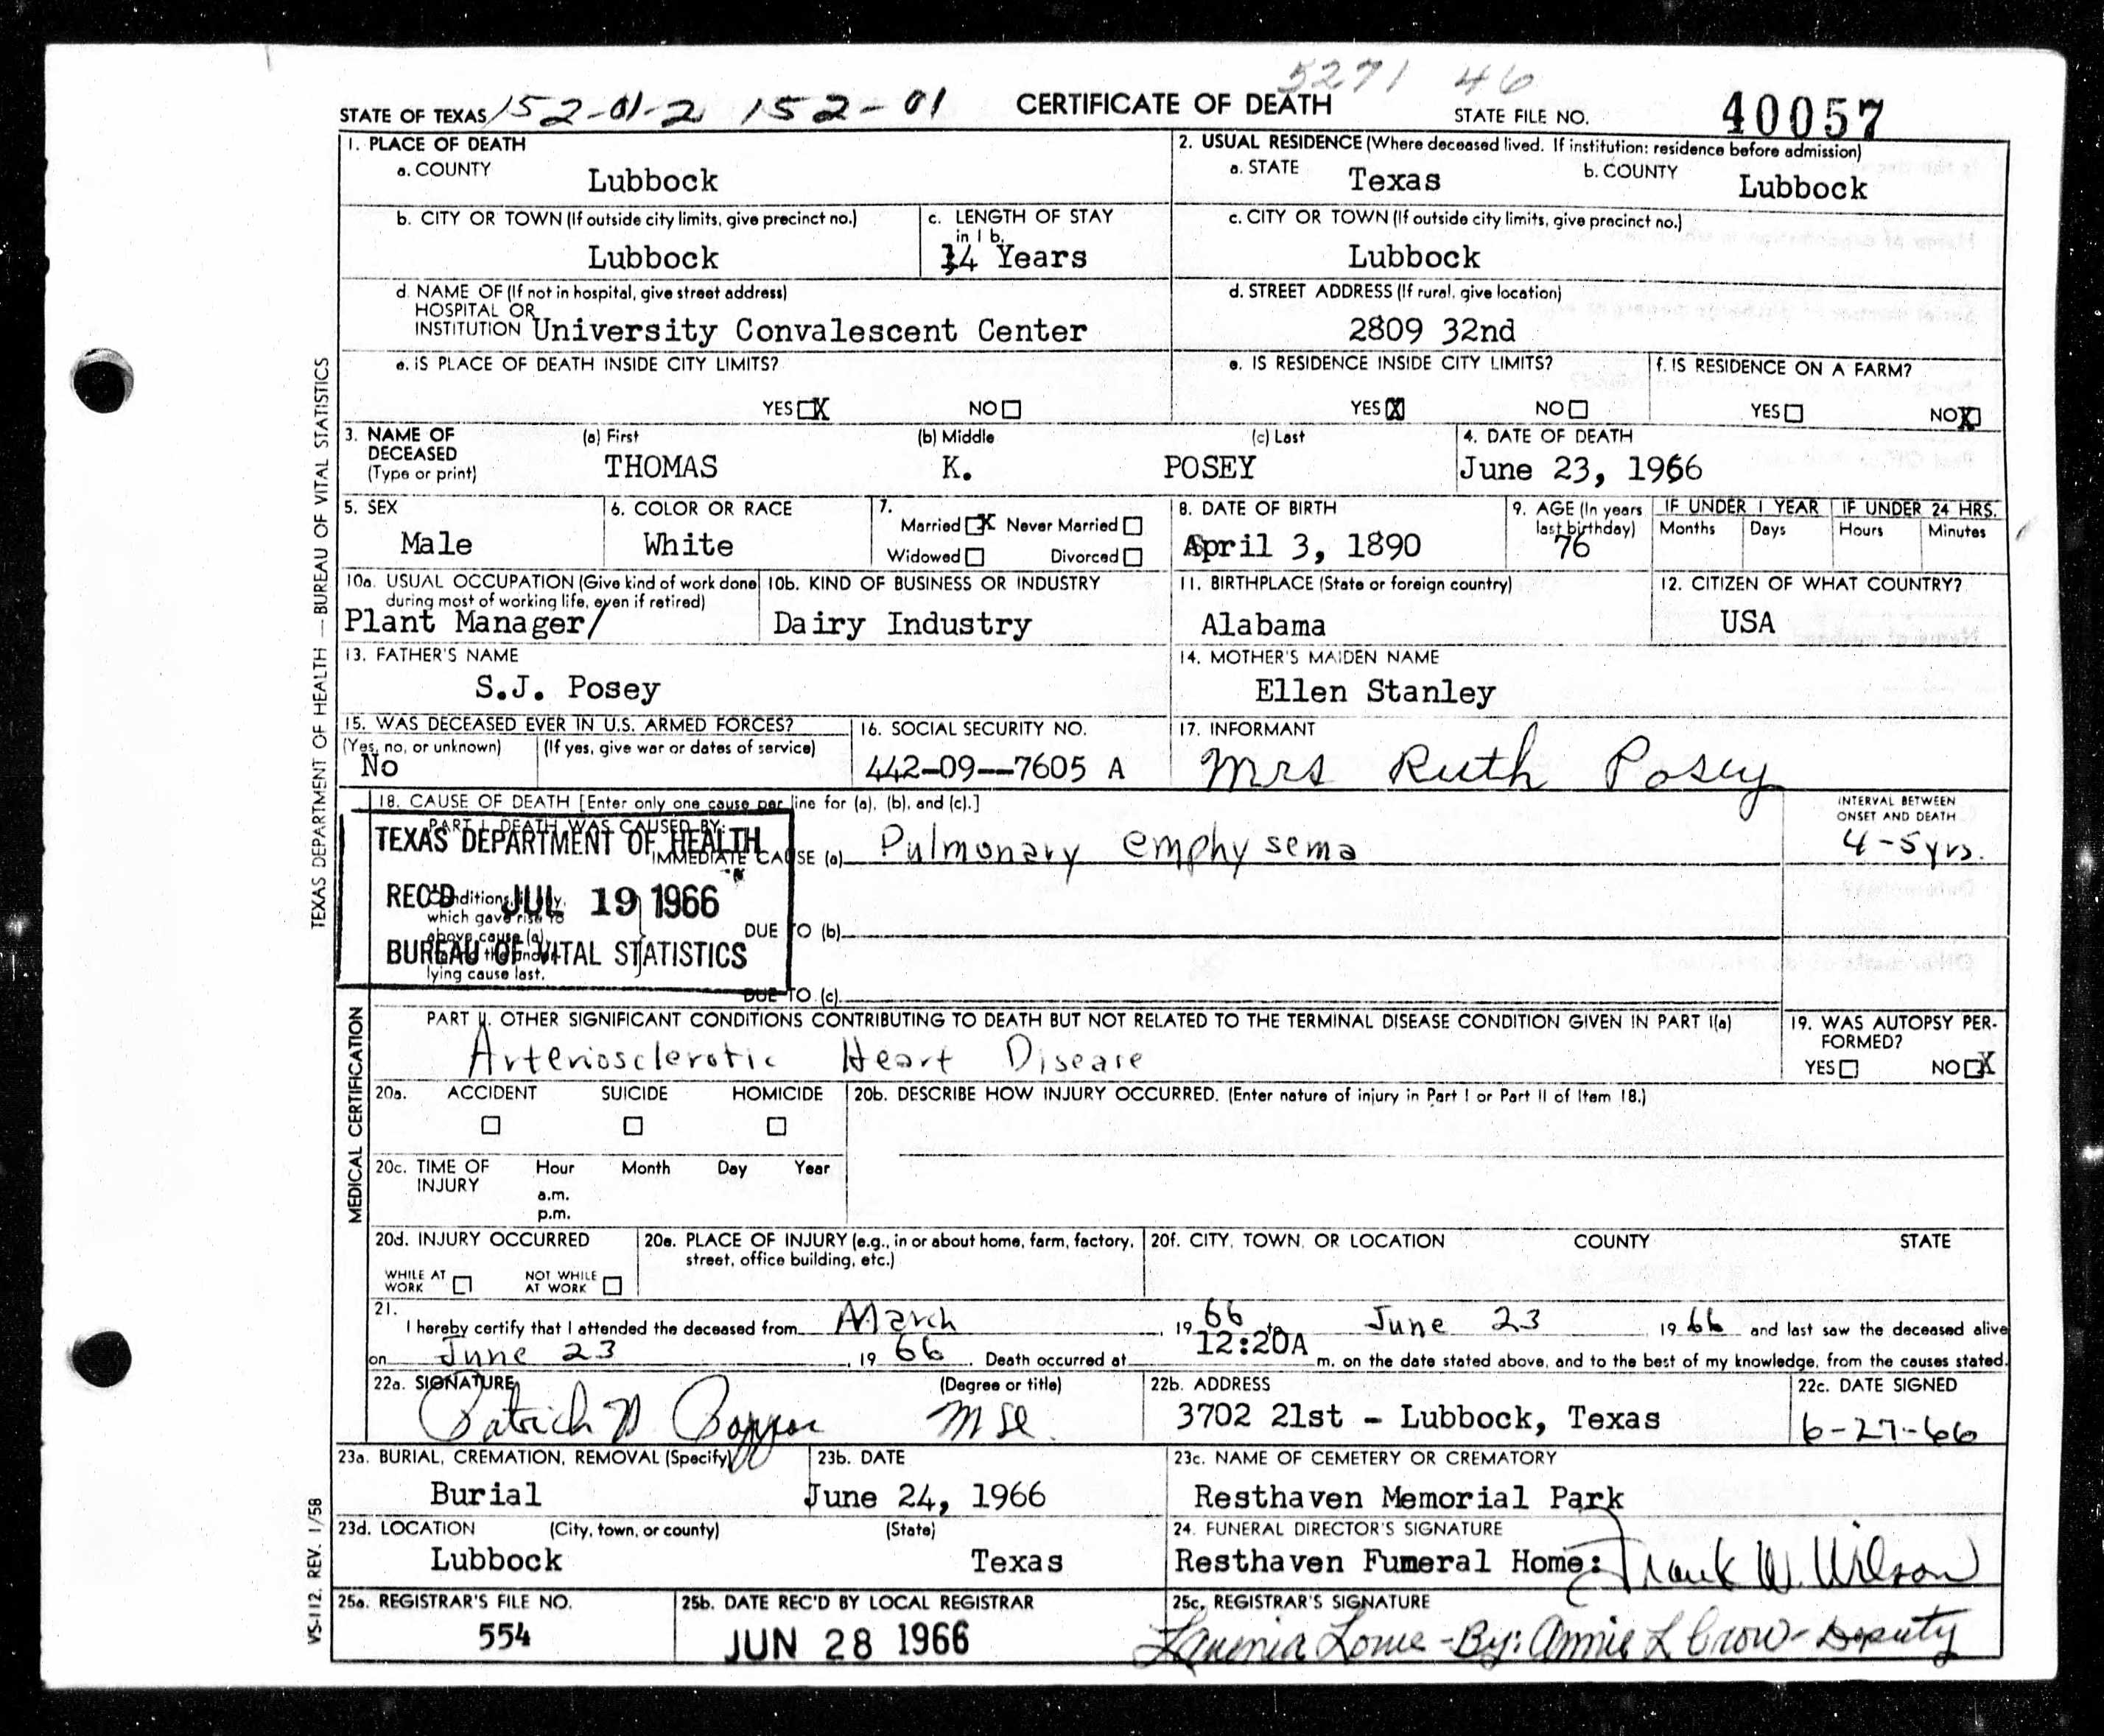 5271 46
STATE OF TEXAS 152-01-2 152-01 CERTIFICATE OF DEATH STATE FILE NO. 40057
1. PLACE OF DEATH
a. COUNTY Lubbock
2. USUAL RESIDENCE (Where deceased lived. If institution: residence before admission)
a. STATE Texas b. COUNTY Lubbock
b. CITY OR TOWN (If outside city limits, give precinct no.)
Lubbock
c. LENGTH OF STAY
in 1 b.
14 Years
c. CITY OR TOWN (If outside city limits, give precinct no.)
Lubbock
d. NAME OF (If not in hospital, give street address)
HOSPITAL OR
INSTITUTION University Convalescent Center
d. STREET ADDRESS (If rural, give location)
2809 32nd
e. IS PLACE OF DEATH INSIDE CITY LIMITS?
YES X NO
e. IS RESIDENCE INSIDE CITY LIMITS?
YES X NO
f. IS RESIDENCE ON A FARM?
YES NO X
3. NAME OF DECEASED (Type or print)
(a) First (b) Middle (c) Last
THOMAS K. POSEY
4. DATE OF DEATH
June 23, 1966
5. SEX
Male
6. COLOR OR RACE
White
7.
Married X Never Married
Widowed Divorced
8. DATE OF BIRTH
April 3, 1890
9. AGE (In years
last birthday)
76
IF UNDER 1 YEAR IF UNDER 24 HRS.
Months Days Hours Minutes
10a. USUAL OCCUPATION (Give kind of work done
during most of working life, even if retired)
Plant Manager/
10b. KIND OF BUSINESS OR INDUSTRY
Dairy Industry
11. BIRTHPLACE (State or foreign country)
Alabama
12. CITIZEN OF WHAT COUNTRY?
USA
13. FATHER'S NAME
S.J. Posey
14. MOTHER'S MAIDEN NAME
Ellen Stanley
15. WAS DECEASED EVER IN U.S. ARMED FORCES?
(Yes, no, or unknown) (If yes, give war or dates of service)
No
16. SOCIAL SECURITY NO.
442-09--7605 A
17. INFORMANT
Mrs Ruth Posey
18. CAUSE OF DEATH [Enter only one cause per line for (a), (b), and (c).]
PART I. DEATH WAS CAUSED BY:
IMMEDIATE CAUSE (a) Pulmonary emphysema
INTERVAL BETWEEN
ONSET AND DEATH
4-5 yrs.
TEXAS DEPARTMENT OF HEALTH
REC'D JUL 19 1966
BUREAU OF VITAL STATISTICS
which gave rise to
above cause (a)
lying cause last.
DUE TO (b)
DUE TO (c)
PART II. OTHER SIGNIFICANT CONDITIONS CONTRIBUTING TO DEATH BUT NOT RELATED TO THE TERMINAL DISEASE CONDITION GIVEN IN PART I(a)
Arteriosclerotic Heart Disease
19. WAS AUTOPSY PER-
FORMED?
YES NO X
20a. ACCIDENT SUICIDE HOMICIDE
20b. DESCRIBE HOW INJURY OCCURRED. (Enter nature of injury in Part I or Part II of Item 18.)
20c. TIME OF INJURY Hour Month Day Year
a.m.
p.m.
20d. INJURY OCCURRED
WHILE AT WORK NOT WHILE AT WORK
20e. PLACE OF INJURY (e.g., in or about home, farm, factory,
street, office building, etc.)
20f. CITY, TOWN, OR LOCATION COUNTY STATE
21.
I hereby certify that I attended the deceased from March, 19 66 to June 23 19 66 and last saw the deceased alive
on June 23, 19 66. Death occurred at 12:20A m. on the date stated above, and to the best of my knowledge, from the causes stated.
22a. SIGNATURE (Degree or title)
Patrick
22b. ADDRESS
3702 21st - Lubbock, Texas
22c. DATE SIGNED
6-27-66
23a. BURIAL, CREMATION, REMOVAL (Specify)
Burial
23b. DATE
June 24, 1966
23c. NAME OF CEMETERY OR CREMATORY
Resthaven Memorial Park
23d. LOCATION (City, town, or county) (State)
Lubbock Texas
24. FUNERAL DIRECTOR'S SIGNATURE
Resthaven Fumeral Home: Frank W. Wilson
25a. REGISTRAR'S FILE NO.
554
25b. DATE REC'D BY LOCAL REGISTRAR
JUN 28 1966
25c. REGISTRAR'S SIGNATURE
Lavenia Lowe - By: Annie L Crow - Deputy
TEXAS DEPARTMENT OF HEALTH — BUREAU OF VITAL STATISTICS
MEDICAL CERTIFICATION
VS-112. REV. 1/58